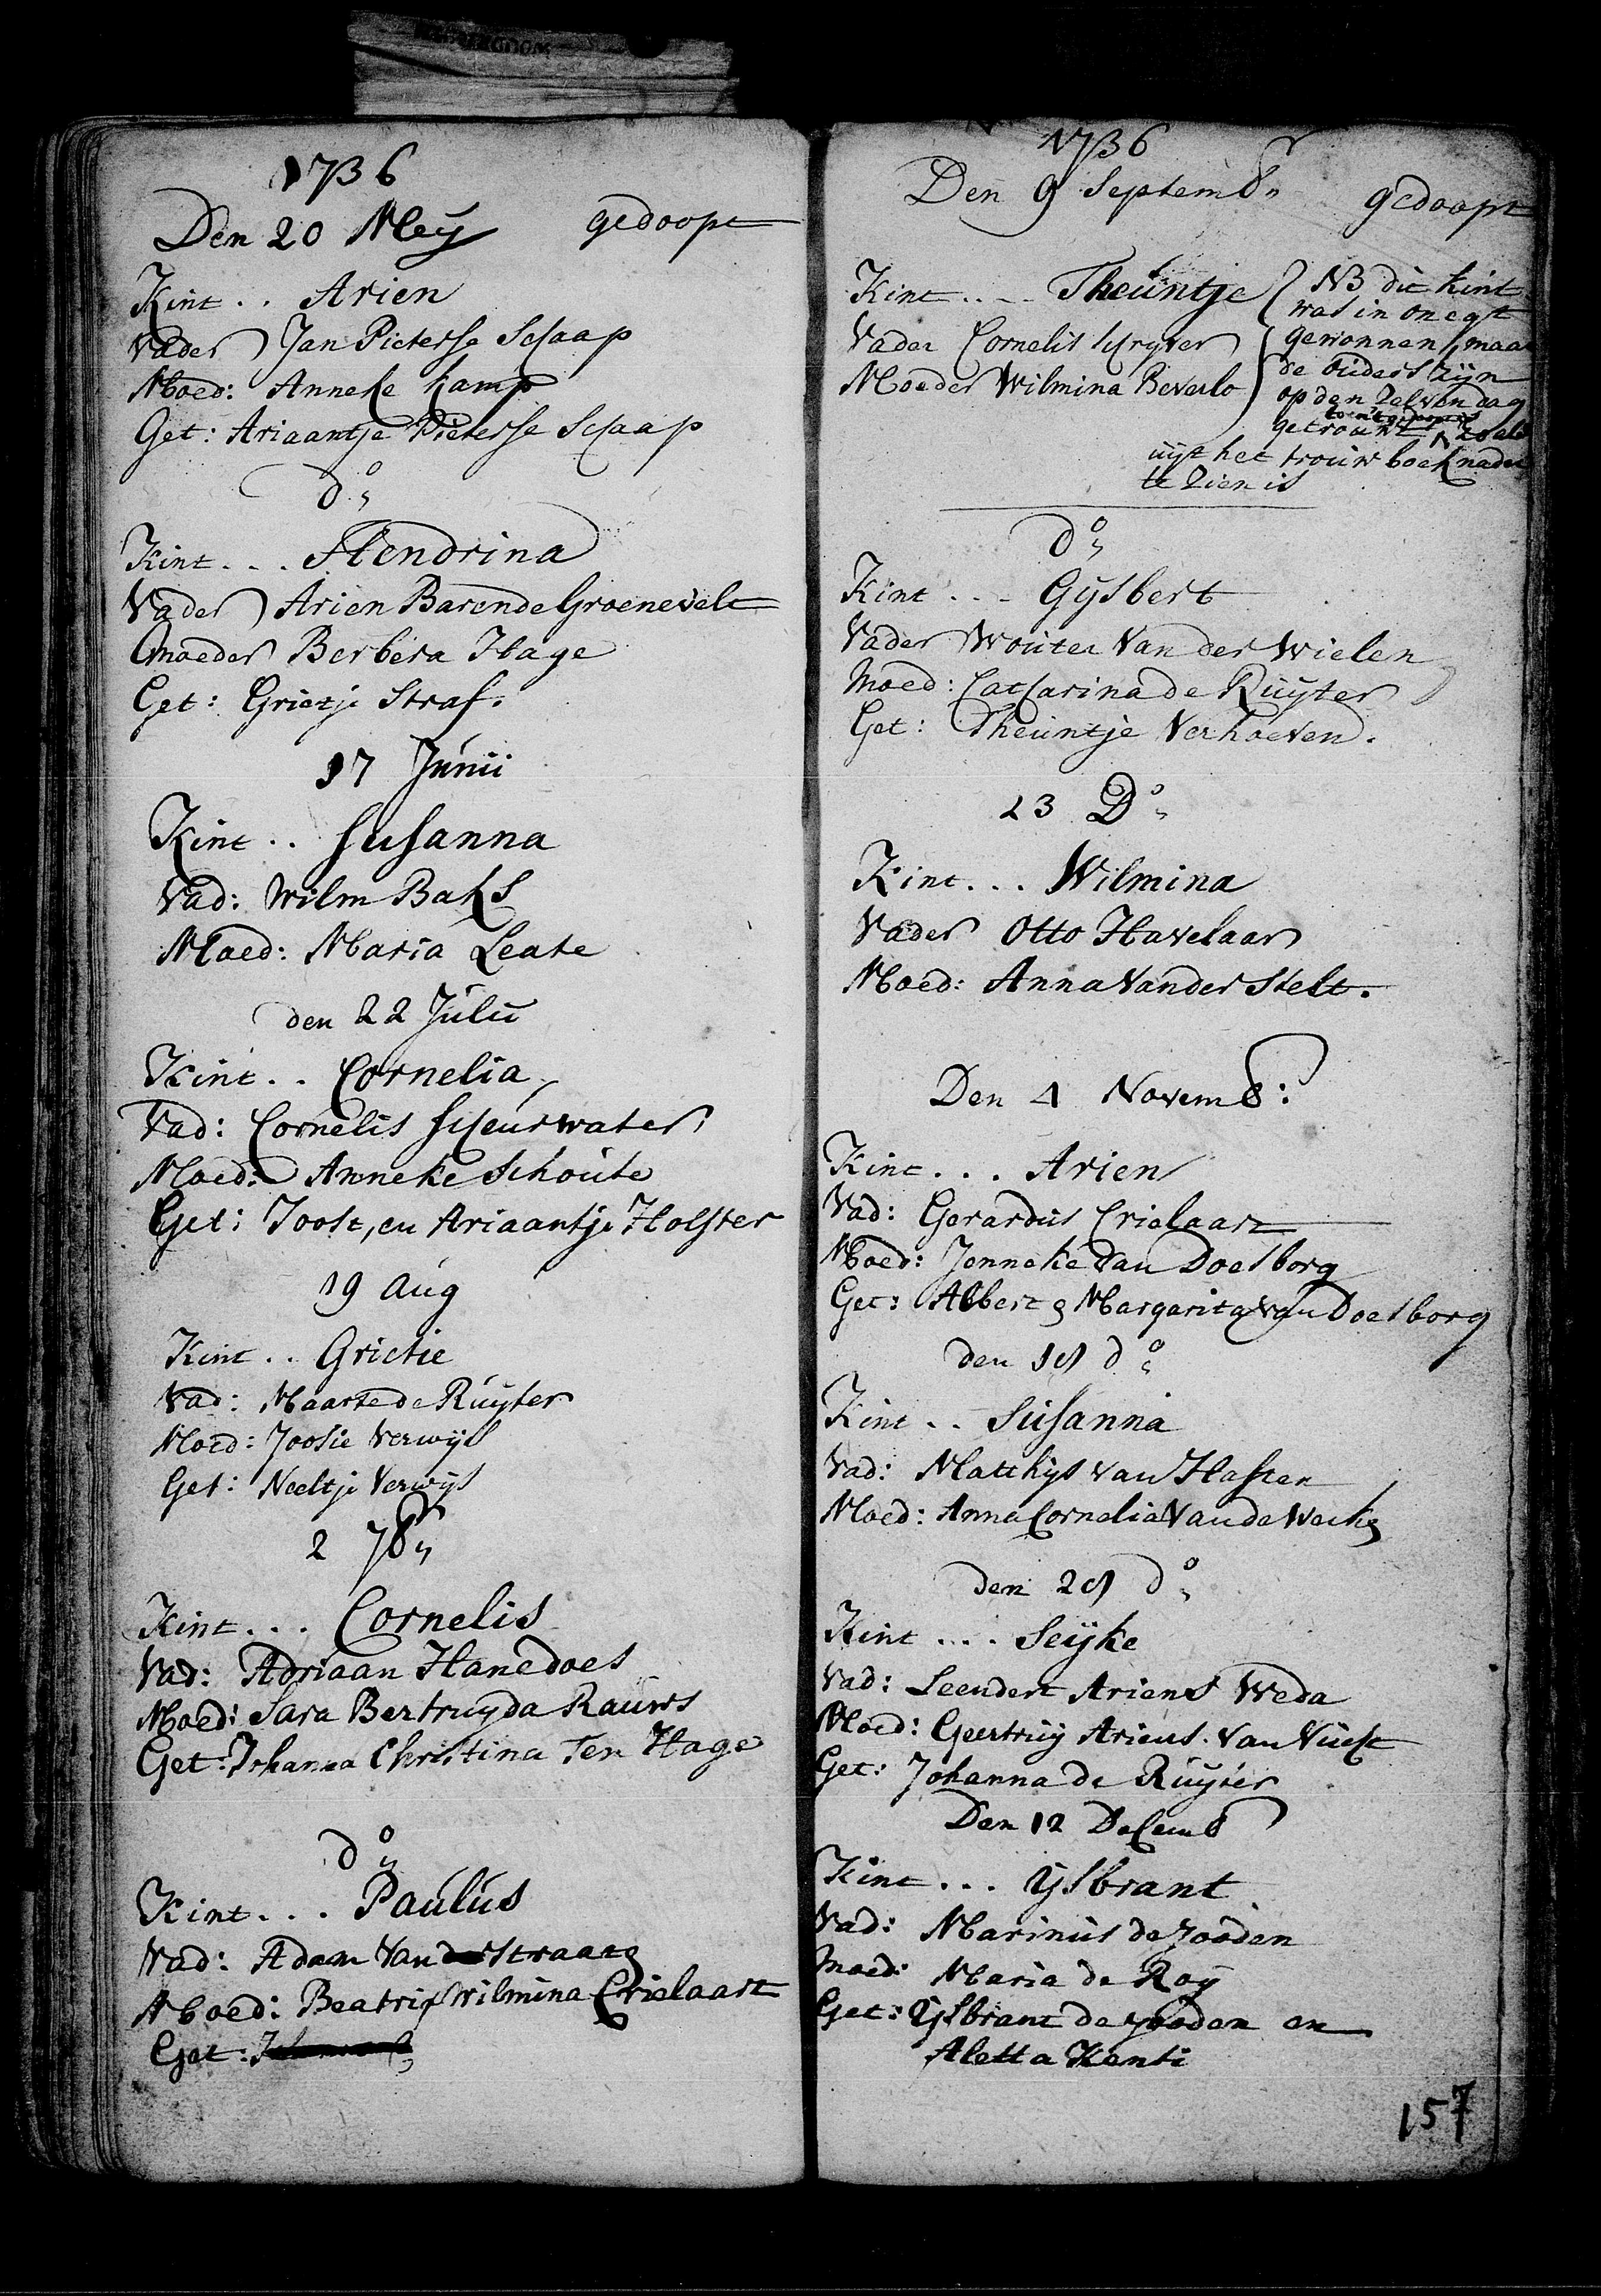 1736
Den 20 Meÿ gedoopt
Kint .. Arien
Vader Jan Pieterse Schaap
Moed: Anneke Kamp
Get: Ariaantje Pieterse Schaap
do
Kint ... Hendrina
Vader Arien Barende Groenevelt
Moeder Berbera Hage
Get: Grietje Straf.
17 Junii
Kint .. Susanna
Vad: Wilm Baks
Moed: Maria Leate
den 22 Julii
Kint .. Cornelia
Vad: Cornelis Scheurwater
Moed: Anneke Schoute
Get: Joost, en Ariaantje Holster
19 Aug
Kint .. Grietie
Vad: Maarte de Ruyter
Moed: Joosie Verwijs
Get: Neeltje Verwijs
2 7br
Kint ... Cornelis
Vad: Adriaan Hanedoes
Moed: Sara Bertruyda Rauws
Get: Johanna Christina Ten Hage
do
Kint ... Paulus
Vad: Adam Van Straate
Moed: Beatrix Wilmina Crielaart
Get:
1736
Den 9 Septembr gedoopt
Kint ... Theuntje
Vader Cornelis Schryver
Moeder Wilmina Beverlo
NB dit kint
was in onegt
gewonnen, maar
de ouders zijn
op den zelven dag
getrouwt zoals
uijt het trouw boek nader
te zien is
do
Kint ... Gysbert
Vader Wouter Van der Wielen
Moed: Catharina de Ruyter
Get: Theuntje Verhoeven.
23 Do
Kint ... Wilmina
Vader Otto Havelaar
Moed: Anna Van der Stelt.
Den 4 Novemb:
Kint ... Arien
Vad: Gerardus Crielaart
Moed: Jenneke Van Doesborg
Get: Albert & Margarita Van Doesborg
den 19 do
Kint .. Susanna
Vad: Matthijs van Hasten
Moed: Anna Cornelia Van de Werke
den 29 do
Kint .... Seijke
Vad: Leendert Ariens Weda
Moed: Geertruij Ariens Van Vugt
Get: Johanna de Ruyter
Den 12 Decemb
Kint ... ijsbrant
Vad: Marinus de Jooden
Moed: Maria de Roij
Get: ijsbrant de Jooden en
Aletta Kenti
157